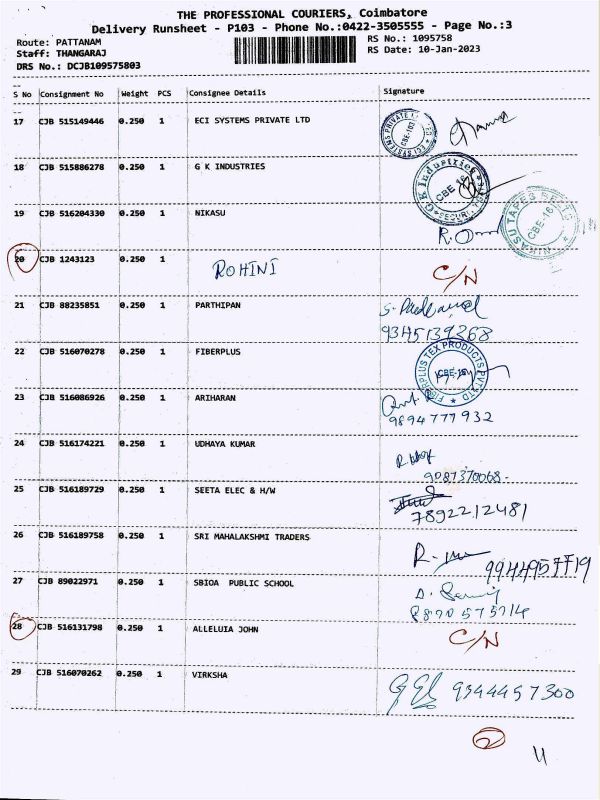 THE PROFESSIONAL COURIERS, Coimbatore
Delivery Runsheet - P103 - Phone No.:0422-3505555 - Page No.:3
Route: PATTANAM RS No.: 1095758
Staff: THANGARAJ RS Date: 10-Jan-2023
DRS No.: DCJB109575803
S No Consignment No Weight PCS Consignee Details Signature
17 CJB 515149446 0.250 1 ECI SYSTEMS PRIVATE LTD
18 CJB 515886278 0.250 1 G K INDUSTRIES
19 CJB 516204330 0.250 1 NIKASU
20 CJB 1243123 0.250 1 ROHINI C/N
21 CJB 88235851 0.250 1 PARTHIPAN
9345139268
22 CJB 516070278 0.250 1 FIBERPLUS
23 CJB 516086926 0.250 1 ARIHARAN
9894777932
24 CJB 516174221 0.250 1 UDHAYA KUMAR
9087370068
25 CJB 516189729 0.250 1 SEETA ELEC & H/W
7892212481
26 CJB 516189758 0.250 1 SRI MAHALAKSHMI TRADERS
9944957719
27 CJB 89022971 0.250 1 SBIOA PUBLIC SCHOOL
8870575714
28 CJB 516131798 0.250 1 ALLELUIA JOHN C/N
29 CJB 516070262 0.250 1 VIRKSHA 9344457300
2 11